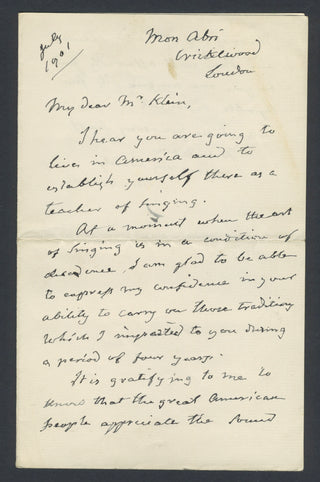 July
1901
Mon Abri
Cricklewood
London
My dear Mr. Klein,
I hear you are going to
live in America and to
establish yourself there as a
teacher of singing.
At a moment when the art
of Singing is in a condition of
decadence, I am glad to be able
to express my confidence in your
ability to carry on those tradition
which I imparted to you during
a period of four years.
It is gratifying to me to
know that the great American
people appreciate the sound